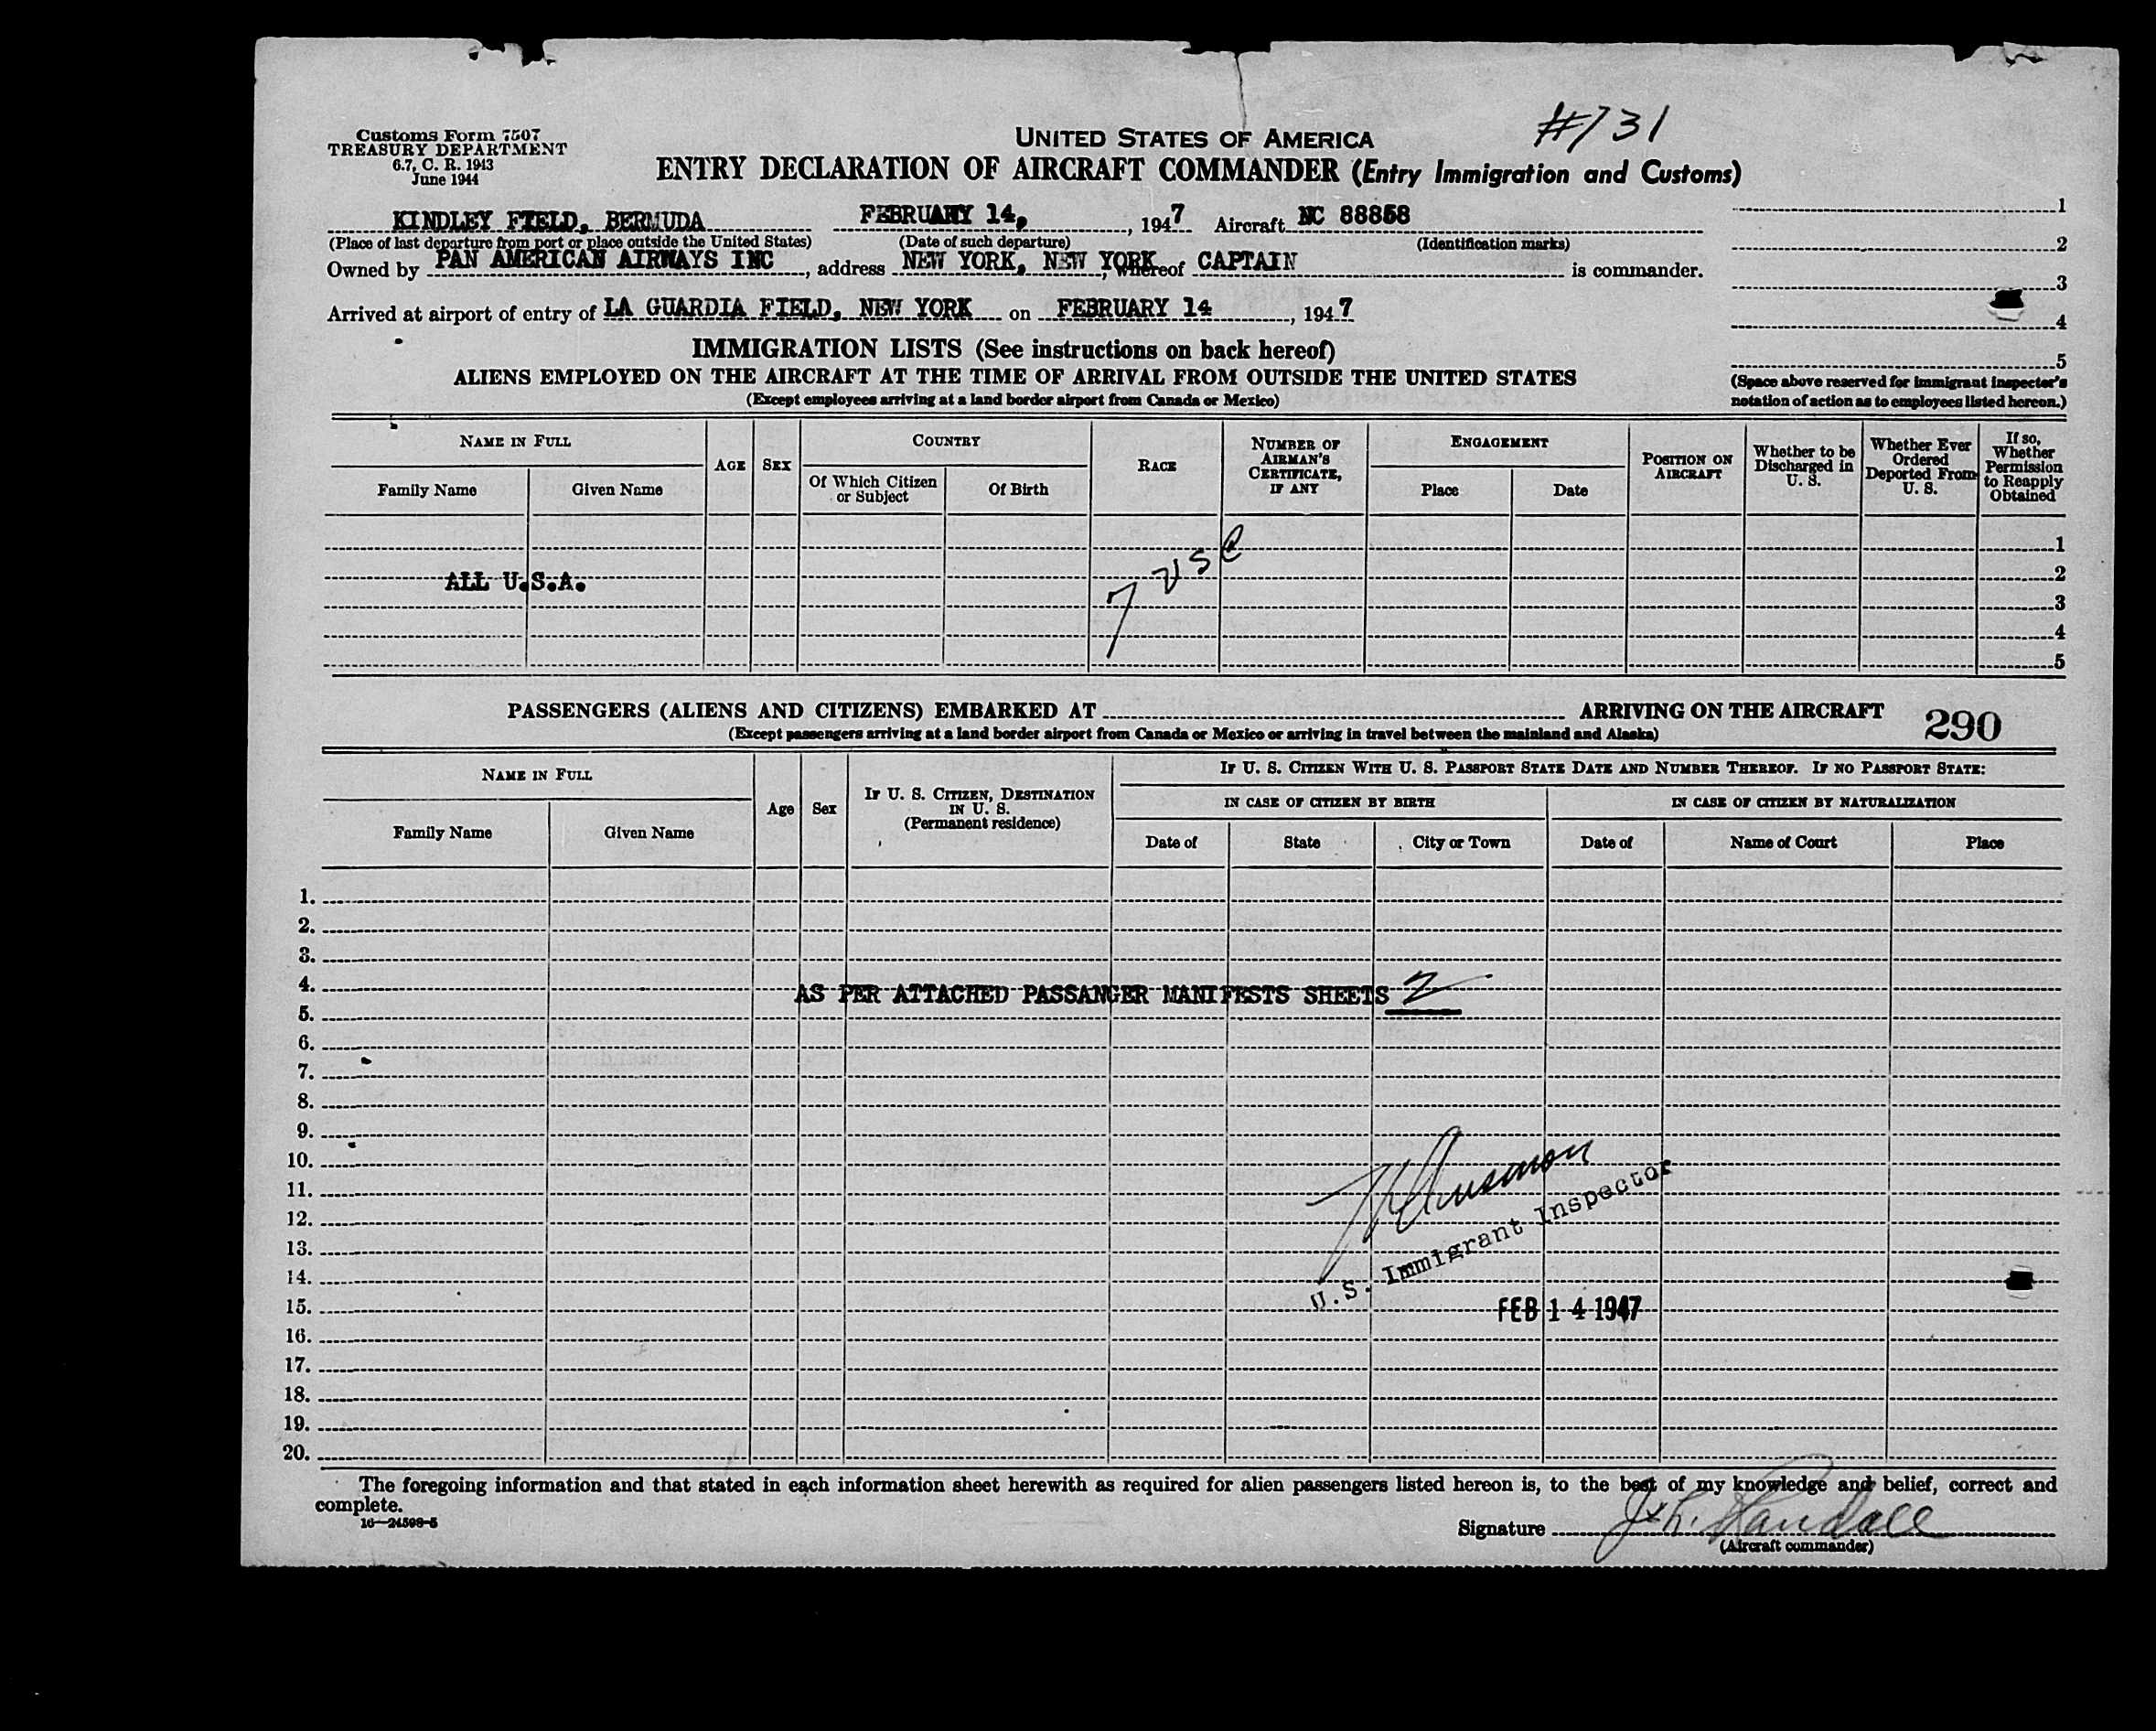 #731
Customs Form 7507
TREASURY DEPARTMENT
6.7, C. R. 1943
June 1944
UNITED STATES OF AMERICA
ENTRY DECLARATION OF AIRCRAFT COMMANDER (Entry Immigration and Customs)
KINDLEY FIELD, BERMUDA FEBRUARY 14, , 1947 Aircraft NC 88858
(Place of last departure from port or place outside the United States) (Date of such departure) (Identification marks)
Owned by PAN AMERICAN AIRWAYS INC, address NEW YORK, NEW YORK, whereof CAPTAIN is commander.
Arrived at airport of entry of LA GUARDIA FIELD, NEW YORK on FEBRUARY 14, 1947
1
2
3
4
5
(Space above reserved for immigrant inspector's
notation of action as to employees listed hereon.)
IMMIGRATION LISTS (See instructions on back hereof)
ALIENS EMPLOYED ON THE AIRCRAFT AT THE TIME OF ARRIVAL FROM OUTSIDE THE UNITED STATES
(Except employees arriving at a land border airport from Canada or Mexico)
NAME IN FULL
Family Name
Given Name
AGE
SEX
COUNTRY
Of Which Citizen
or Subject
Of Birth
RACE
NUMBER OF
AIRMAN'S
CERTIFICATE,
IF ANY
ENGAGEMENT
Place
Date
POSITION ON
AIRCRAFT
Whether to be
Discharged in
U. S.
Whether Ever
Ordered
Deported From
U. S.
If so,
Whether
Permission
to Reapply
Obtained
1
2
3
4
5
ALL U.S.A.
7 USC
PASSENGERS (ALIENS AND CITIZENS) EMBARKED AT ARRIVING ON THE AIRCRAFT
290
(Except passengers arriving at a land border airport from Canada or Mexico or arriving in travel between the mainland and Alaska)
NAME IN FULL
Family Name
Given Name
Age
Sex
IF U. S. CITIZEN, DESTINATION
IN U. S.
(Permanent residence)
IF U. S. CITIZEN WITH U. S. PASSPORT STATE DATE AND NUMBER THEREOF. IF NO PASSPORT STATE:
IN CASE OF CITIZEN BY BIRTH
IN CASE OF CITIZEN BY NATURALIZATION
Date of
State
City or Town
Date of
Name of Court
Place
1.
2.
3.
4.
AS PER ATTACHED PASSANGER MANIFESTS SHEETS 2
5.
6.
7.
8.
9.
10.
11.
12.
13.
14.
U.S. Immigrant Inspector
15.
FEB 14 1947
16.
17.
18.
19.
20.
The foregoing information and that stated in each information sheet herewith as required for alien passengers listed hereon is, to the best of my knowledge and belief, correct and
complete.
16—24598-5
Signature Randall
(Aircraft commander)